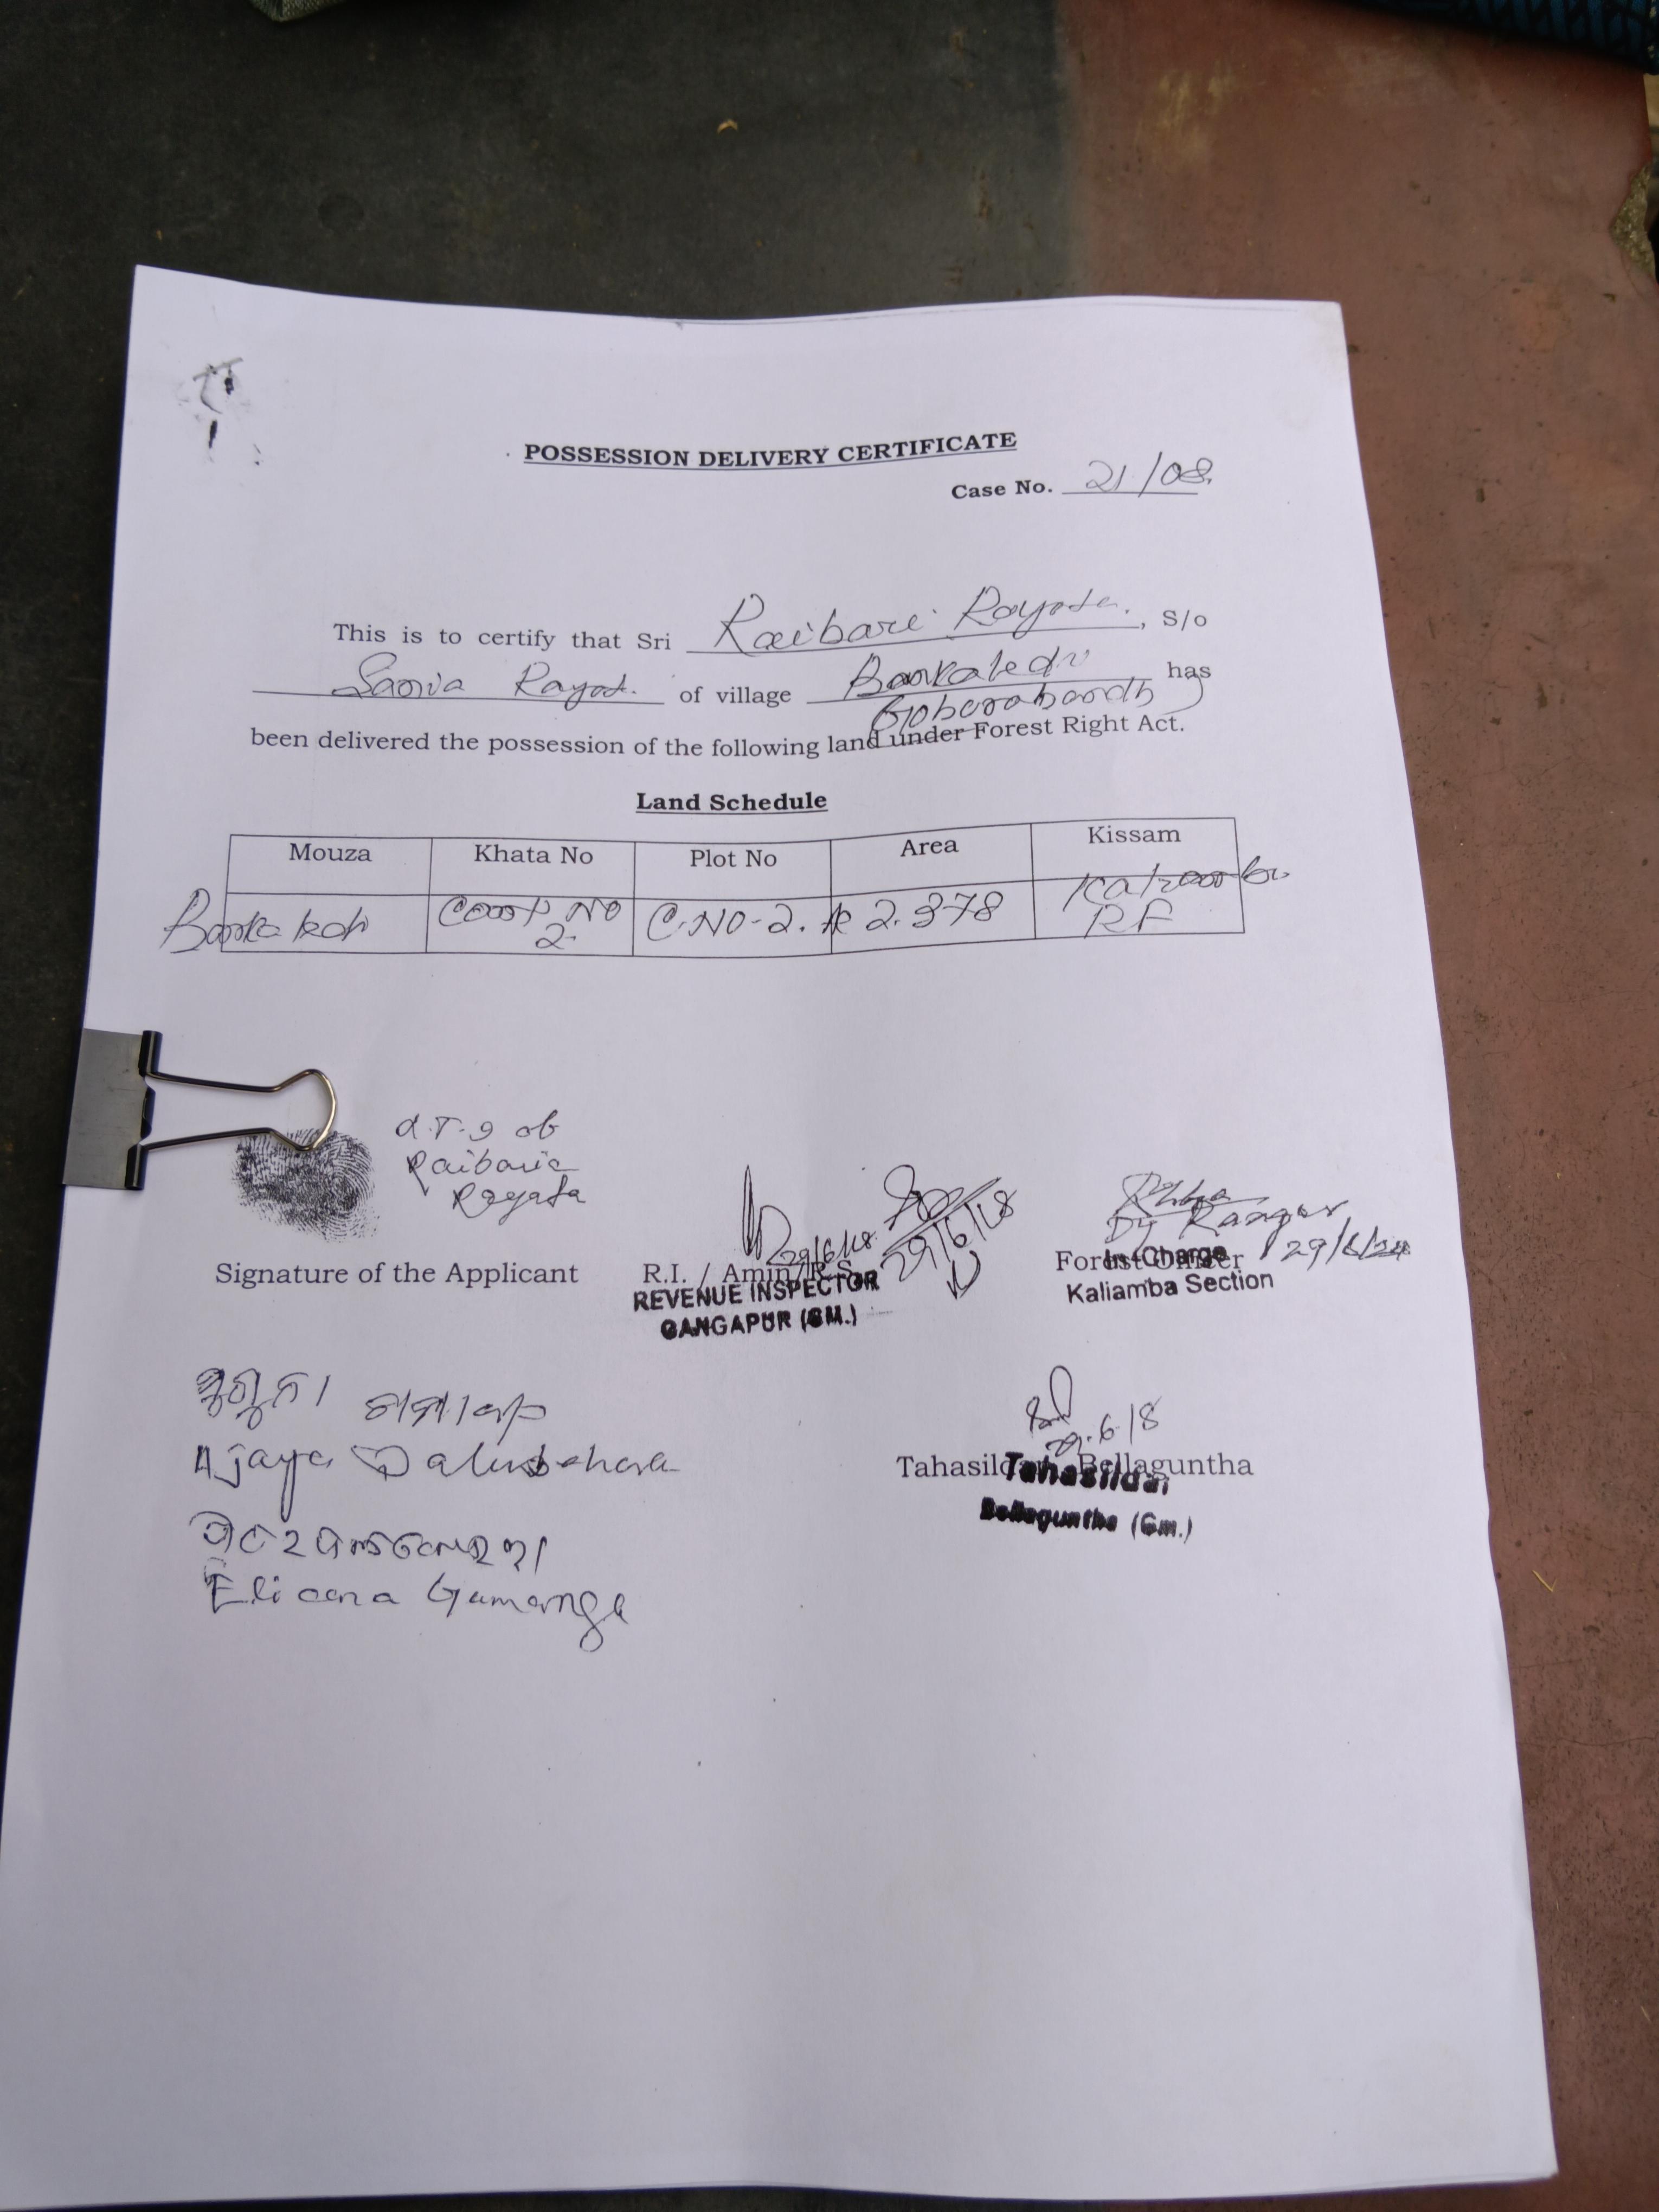 POSSESSION DELIVERY CERTIFICATE
Case No. 21/08.
This is to certify that Sri Raibari Rayata. , S/o
Sania Rayat. of village has
been delivered the possession of the following land under Forest Right Act.
Land Schedule
Mouza Khata No Plot No Area Kissam
No 2. C.NO-2. 2.378 RF
L.T.I of
Raibaria
Rayata
29/6/18. 29/6/18
Dy Ranger
29/6/
Signature of the Applicant R.I. / Amin/R.S. Forest Officer
REVENUE INSPECTOR In-Charge
GANGAPUR (GM.) Kaliamba Section
Ajaya Dalabehera
29.6.18
Tahasildar, Bellaguntha
Tahasildar
Bellaguntha (Gm.)
Gamango